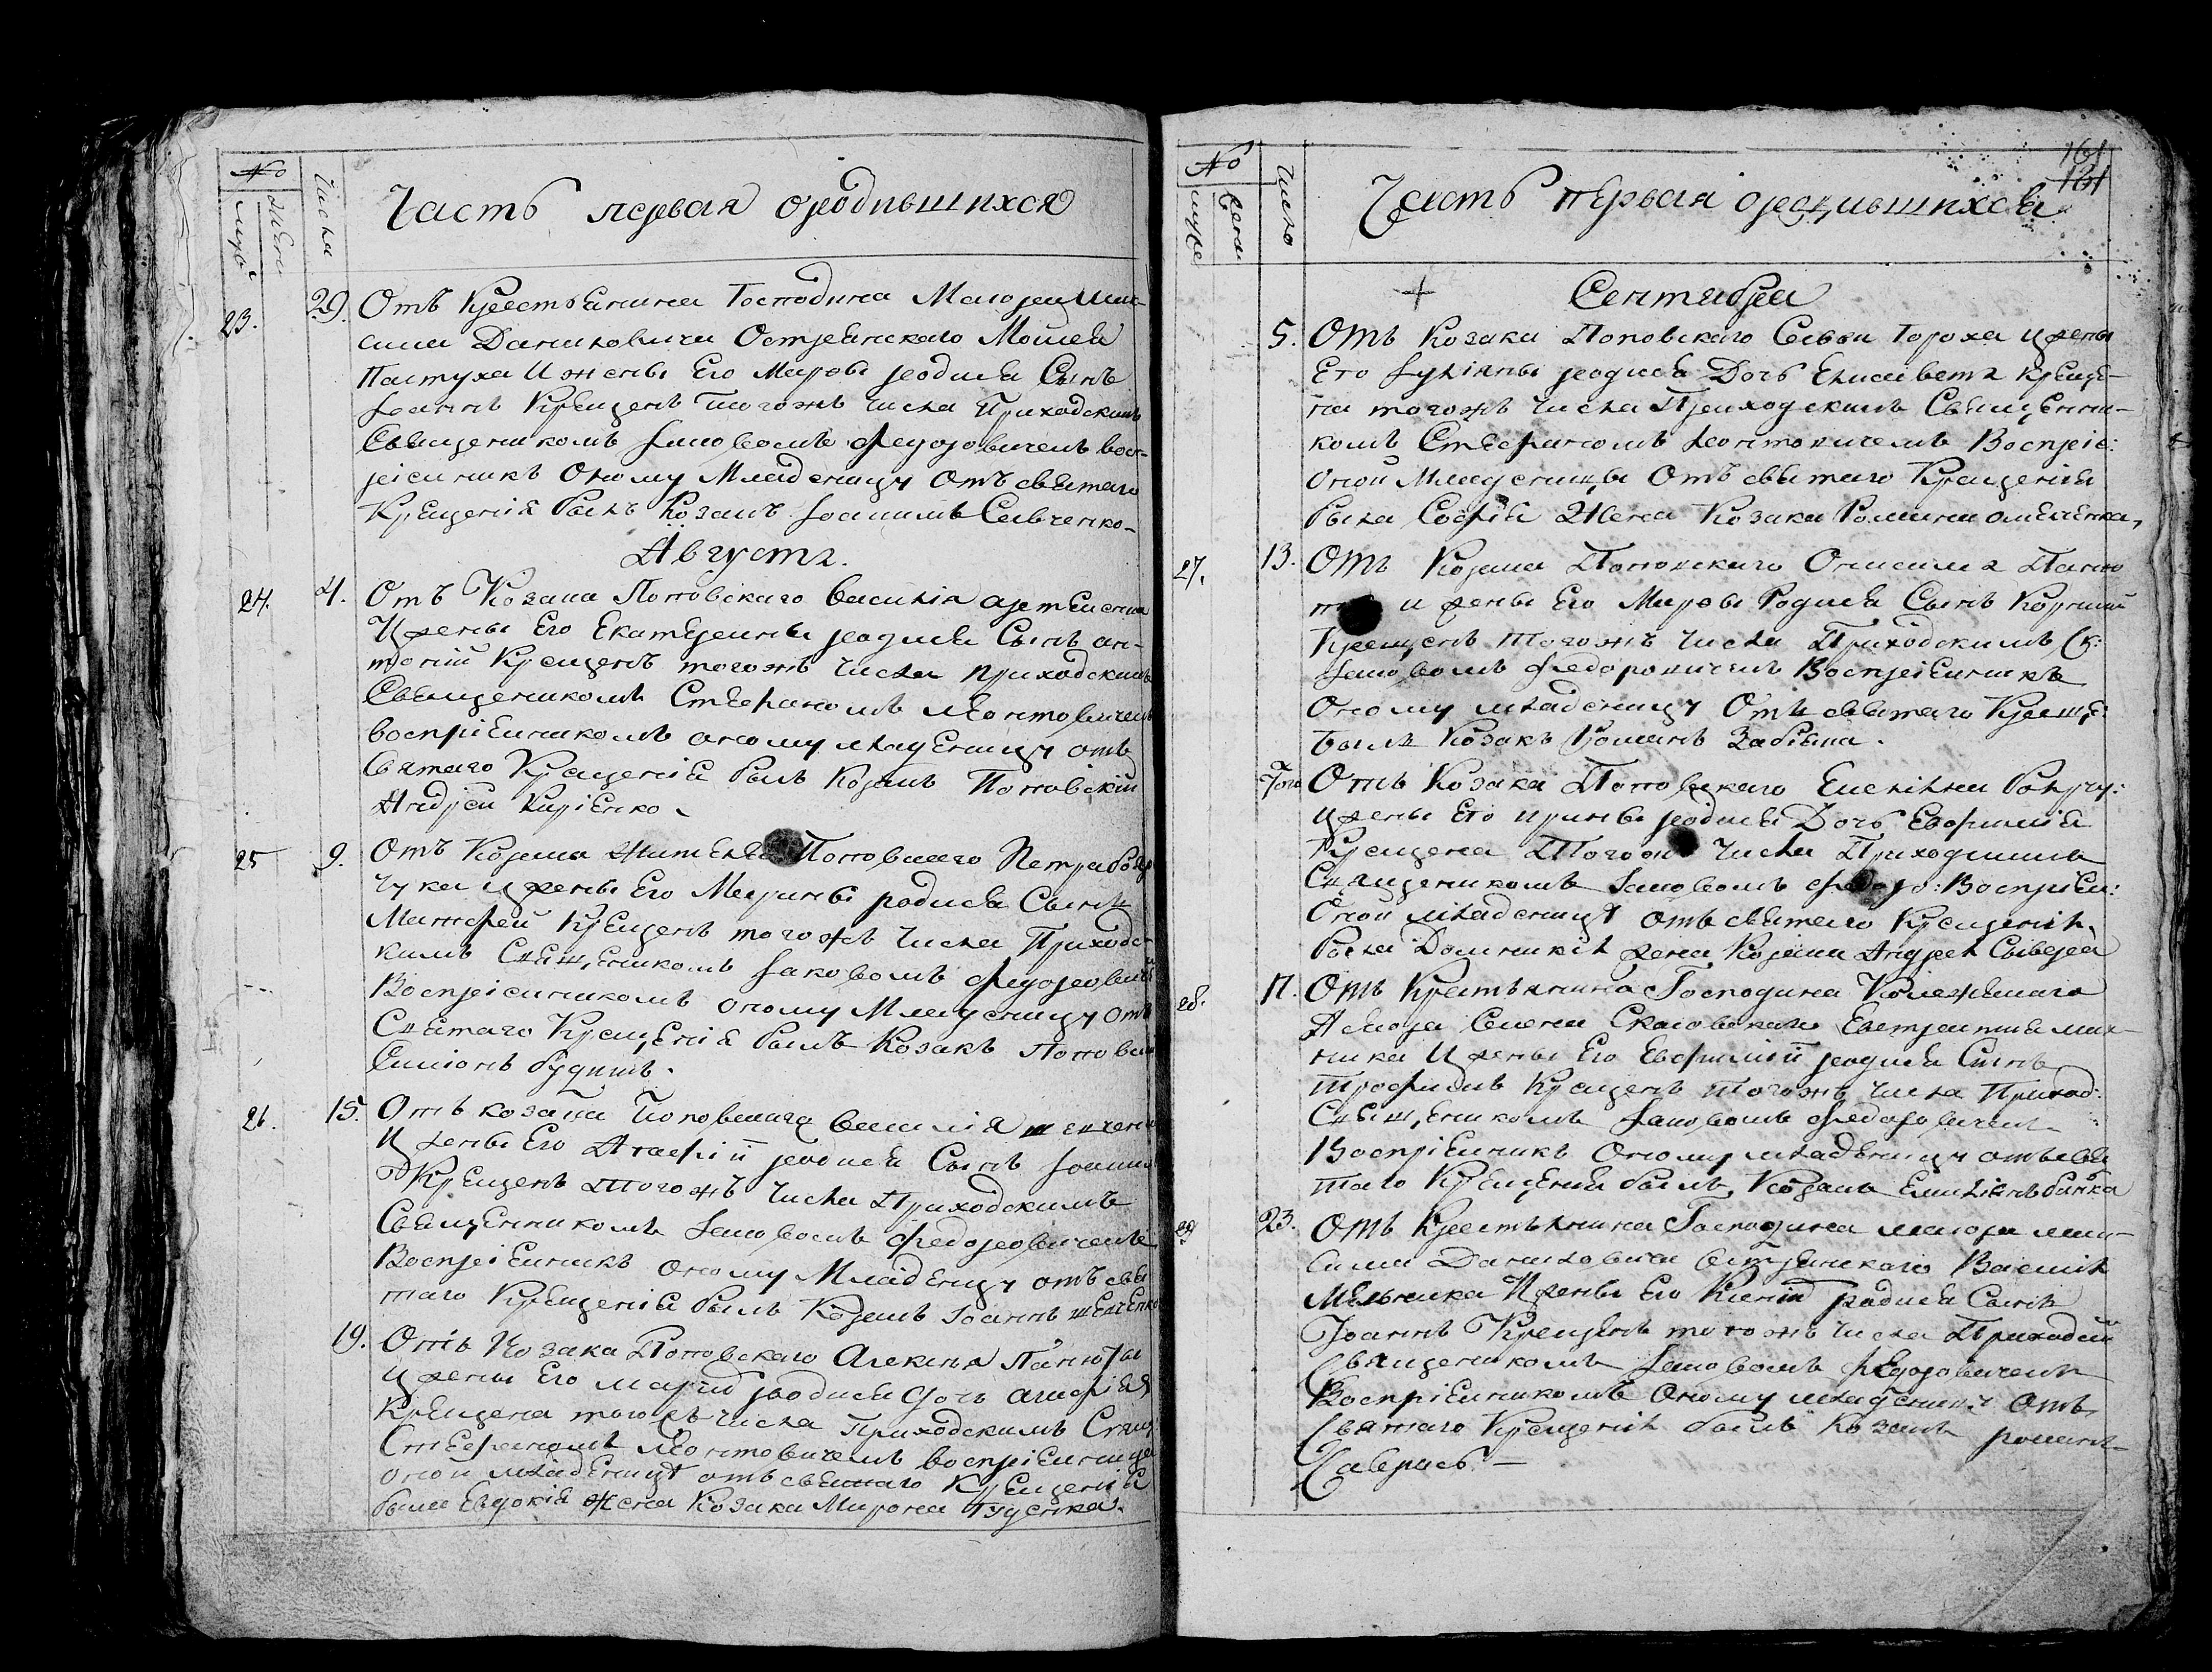 №
муж
жен
Числа
Часть первая о родившихся
23.
29. Отъ Крестьянина Господина Маюра Мак-
сима Даниловича Острянского Мойсея
Пастуха и жены Его Марфы родися Сынъ
Іоаннъ Крещенъ тогожъ числа Приходскимъ
Священикомъ Іаковомъ Федоровичемъ вос-
пріеникъ оному Младенцу отъ святаго
Крещенія былъ Козакъ Іоаннъ Савченко
Августъ.
24.
4. Отъ Козака Поповского Василія
И жены Его Екатерины родися Сынъ ан-
тоній Крещенъ тогожъ числа приходскимъ
Священикомъ Стефаномъ Леонтовичемъ
воспріеникомъ оному младенцу отъ
Святаго Крещенія былъ Козакъ Поповскій
Андрей Киріенко
25
9. Отъ Козака Жителя Поповского Петра Бов
чука и жены Его Марины родися Сынъ
Матфей Крещенъ тогожъ числа Приходс-
кимъ Священикомъ Іаковомъ Федорович
Воспріеникомъ оному Младенцу отъ
Святаго Крещенія былъ Козакъ Попов
Симіонъ Будникъ.
26.
15. Отъ козака Поповского Василія шевчен
И жены Его Агафіи родися Сынъ Іоанн
Крещенъ тогожъ числа Приходскимъ
Священникомъ Іаковомъ Федоровичемъ
Воспріеникъ оному Младенцу отъ свя
таго Крещенія былъ Козакъ Іоаннъ шевченко
19. Отъ Козака Поповского Алексія Панюты
И жены Его Маріи родися дочь агафія
Крещена тогожъ числа Приходскимъ Свящ
Стефаномъ Леонтовичемъ воспріеница
оной младеницы отъ святаго Крещенія
была Евдокія жена Козака Мирона Гуценка.
№
муже
жена
Число
161
161
Часть первая о родившихся
Сентября
5. Отъ Козака Поповского Савви Гороха И жены
Его Іуліяны родися Дочь Елисаветъ креще-
на тогожъ числа Приходскимъ Священни-
комъ Стефаномъ Леонтовичемъ Воспріе:
оной Младеницы Отъ святаго Крещенія
была Софія Жена Козака Романа омеленка,
27.
13. Отъ Козака Поповского Онисима Паню
и жены Его Марфы Родися Сынъ Корнилій
Крещенъ тогожъ числа Приходскимъ Св:
Іаковомъ Федоровичемъ Воспріеникъ
Оному младенцу Отъ святаго Креще:
былъ Козакъ Романъ Забіяка.
Того Отъ Козака Поповского Емеліяна Бовчу:
И жены Его ирины родися Дочь Евфимія
Крещена Тогож числа Приходскимъ
Священикомъ Іаковомъ Федоро: Воспріен:
Оной младеницы отъ святаго Крещенія,
была Домникія жена Козака Андрея
28.
17. Отъ Крестьянина Господина Колежскаго
Асесора Семена Евстратия мир-
ника И жены Его Евфиміи родися Сынъ
Трофимъ Крещенъ тогожъ числа Приход:
Священикомъ Іаковомъ Федоровичемъ
Воспріеникъ Оному младенцу отъ свя
таго Крещенія былъ Козакъ Емиліянъ
29
23. Отъ Крестьянина Господина маюра мак-
сима Даниловича Острянского Василія
Мельника И жены Его Ксеніи родися Сынъ
Іоаннъ Крещенъ тогожъ числа Приходский
Священикомъ Іаковомъ Федоровичемъ
Воспріеникомъ Оному младенцу Отъ
Святаго Крещенія былъ Козакъ романъ